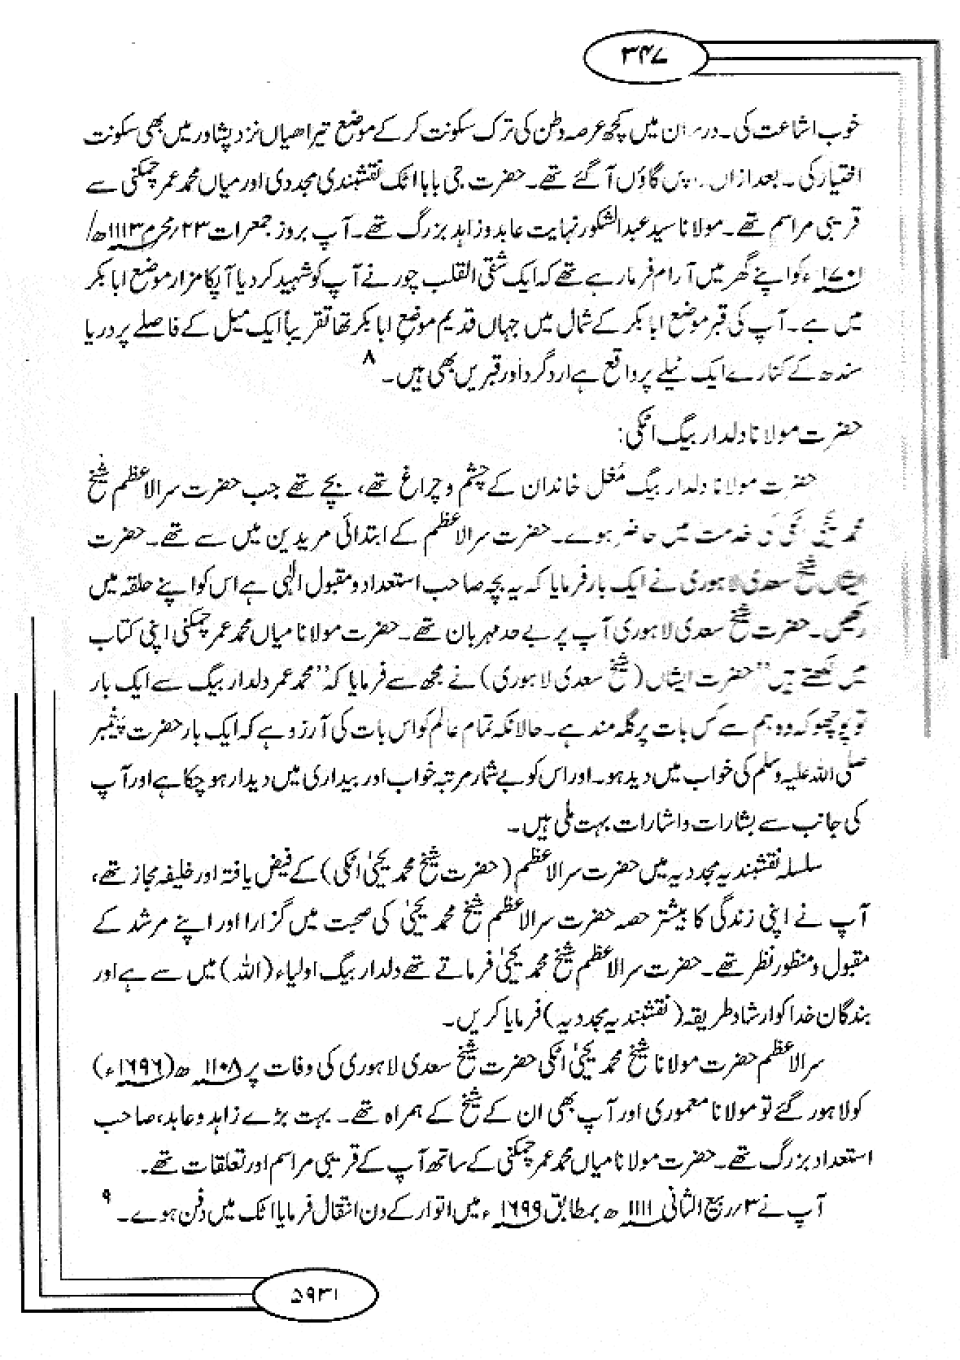 ۳۴۷
خوب اشاعت کی۔ درمیان میں کچھ عرصہ وطن کی ترک سکونت کر کے موضع تیراھیاں نزد پشاور میں بھی سکونت
اختیار کی۔ بعد ازاں واپس گاؤں آگئے تھے۔ حضرت جی بابا اٹک نقشبندی مجددی اور میاں محمد عمر چمکنی سے
قریبی مراسم تھے۔ مولانا سید عبدالشکور نہایت عابد و زاہد بزرگ تھے۔ آپ بروز جمعرات ۲۳؍محرم ۱۱۱۳ھ/
۱۷۰۱ء کو اپنے گھر میں آرام فرما رہے تھے کہ ایک شقی القلب چور نے آپ کو شہید کر دیا آپکا مزار موضع ابا بکر
میں ہے۔ آپ کی قبر موضع ابا بکر کے شمال میں جہاں قدیم موضع ابا بکر تھا تقریباً ایک میل کے فاصلے پر دریا
سندھ کے کنارے ایک ٹیلے پر واقع ہے اردگرد اور قبریں بھی ہیں۔ ۸
حضرت مولانا دلدار بیگ اٹکی:
حضرت مولانا دلدار بیگ مُغل خاندان کے چشم و چراغ تھے، بچے تھے جب حضرت سرالاعظم شیخ
محمد یحییٰ اٹکی کی خدمت میں حاضر ہوے۔ حضرت سرالاعظم کے ابتدائی مریدین میں سے تھے۔ حضرت
ایشاں شیخ سعدی لاہوری نے ایک بار فرمایا کہ یہ بچہ صاحب استعداد و مقبول الٰہی ہے اس کو اپنے حلقہ میں
رکھیں۔ حضرت شیخ سعدی لاہوری آپ پر بے حد مہربان تھے۔ حضرت مولانا میاں محمد عمر چمکنی اپنی کتاب
میں لکھتے ہیں "حضرت ایشاں (شیخ سعدی لاہوری) نے مجھ سے فرمایا کہ "محمد عمر دلدار بیگ سے ایک بار
تو پوچھو کہ وہ ہم سے کس بات پر گلہ مند ہے۔ حالانکہ تمام عالم کو اس بات کی آرزو ہے کہ ایک بار حضرت پیغمبر
صلی اللہ علیہ وسلم کی خواب میں دید ہو۔ اور اس کو بے شمار مرتبہ خواب اور بیداری میں دیدار ہو چکا ہے اور آپ
کی جانب سے بشارات و اشارات بہت ملی ہیں۔
سلسلہ نقشبندیہ مجددیہ میں حضرت سرالاعظم (حضرت شیخ محمد یحییٰ اٹکی) کے فیض یافتہ اور خلیفہ مجاز تھے،
آپ نے اپنی زندگی کا بیشتر حصہ حضرت سرالاعظم شیخ محمد یحییٰ کی صحبت میں گزارا اور اپنے مرشد کے
مقبول و منظور نظر تھے۔ حضرت سرالاعظم شیخ محمد یحییٰ فرماتے تھے دلدار بیگ اولیاء (اللہ) میں سے ہے اور
بندگان خدا کو ارشاد طریقہ (نقشبندیہ مجددیہ) فرمایا کریں۔
سرالاعظم حضرت مولانا شیخ محمد یحییٰ اٹکی حضرت شیخ سعدی لاہوری کی وفات پر ۱۱۰۸ھ (۱۶۹۶ء)
کو لاہور گئے تو مولانا معموری اور آپ بھی ان کے شیخ کے ہمراہ تھے۔ بہت بڑے زاہد و عابد، صاحب
استعداد بزرگ تھے۔ حضرت مولانا میاں محمد عمر چمکنی کے ساتھ آپ کے قریبی مراسم اور تعلقات تھے۔
آپ نے ۳؍ربیع الثانی ۱۱۱۱ھ بمطابق ۱۶۹۹ء میں اتوار کے دن انتقال فرمایا اٹک میں دفن ہوے۔ ۹
۵۹۳۱